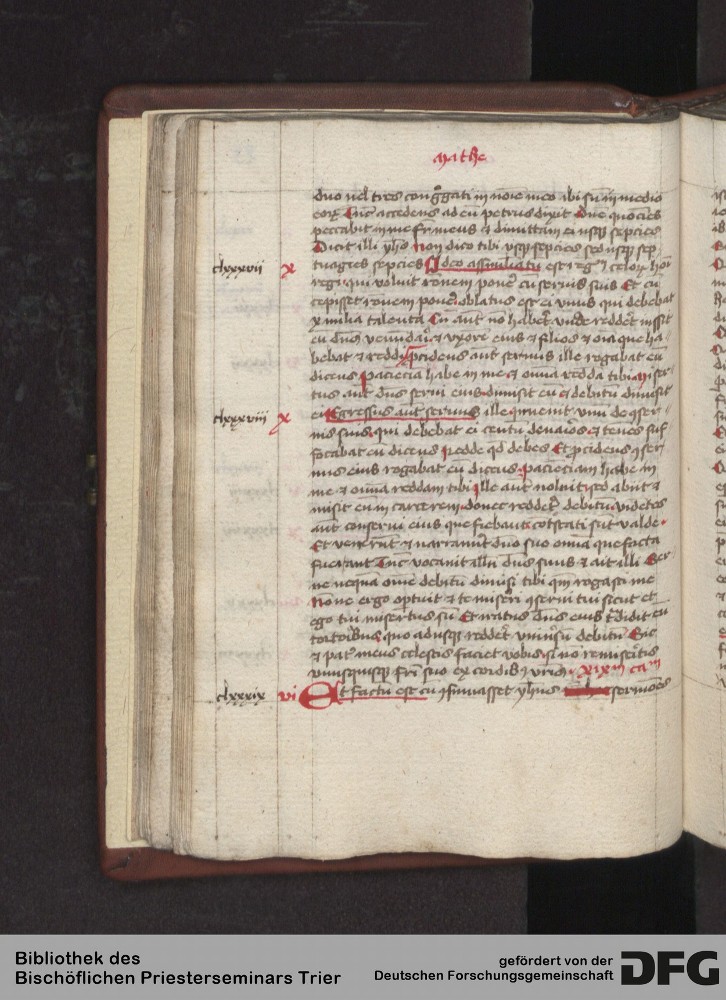 Mathe
duo uel tres congregati in noie meo ibi sum in medio
eorum Tunc accedens ad eum petrus dixit Dne quociens
peccabit in me fr meus et dimittam ei usque sepcies
Dicit illi yhs Non dico tibi usque sepcies sed usque sep
clxxxvii x tuagies sepcies Ideo assimilatum est regnum celorum hoi
regi qui voluit ronem ponere cum seruis suis Et cum
cepisset ronem ponere oblatus est ei vnus qui debebat
x milia talenta Cum aut no haberet vnde redderet iussit
eum dns venundari et vxorem eius et filios et oia que ha
bebat et reddi Procidens aut seruus ille rogabat eum
dicens paciencia habe in me et omnia reddam tibi Miser
tus aut dns serui eius dimisit eum et debitum dimisit
clxxxviii x ei Egressus aut seruus ille inuenit vnum de conser
uis suis qui debebat ei centum denarios et tenens suf
focabat eum dicens Redde qd debes Et procidens conser
uus eius rogabat eum dicens pacienciam habe in
me et omnia reddam tibi Ille aut noluit sed abiit et
misit eum in carcerem donec redderet debitum videntes
aut conserui eius que fiebant contristati sunt valde
Et venerunt et narrauerunt dno suo omnia que facta
fuerant Tunc vocauit illum dns suus et ait illi Ser
ue nequam omne debitum dimisi tibi qm rogasti me
Nonne ergo oportuit et te misereri conserui tui sicut et
ego tui misertus sum Et iratus dns eius tradidit eum
tortoribus quo adusque redderet vniuersum debitum Sic
et pater meus celestis faciet vobis si no remiseritis
vnusquisque fri suo ex cordibus vris xixm cam
clxxxix vi Et factum est cum consumasset yhesus sermones
Bibliothek des
Bischöflichen Priesterseminars Trier
gefördert von der
Deutschen Forschungsgemeinschaft
DFG